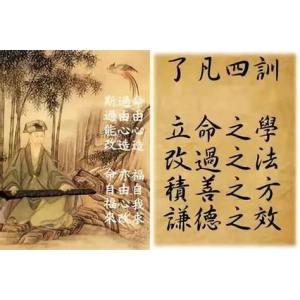 命由心造 福自我來
過由心造 亦由心改
斯過能改 命自福來
了凡四訓
立命之學
改過之法
積善之方
謙德之效